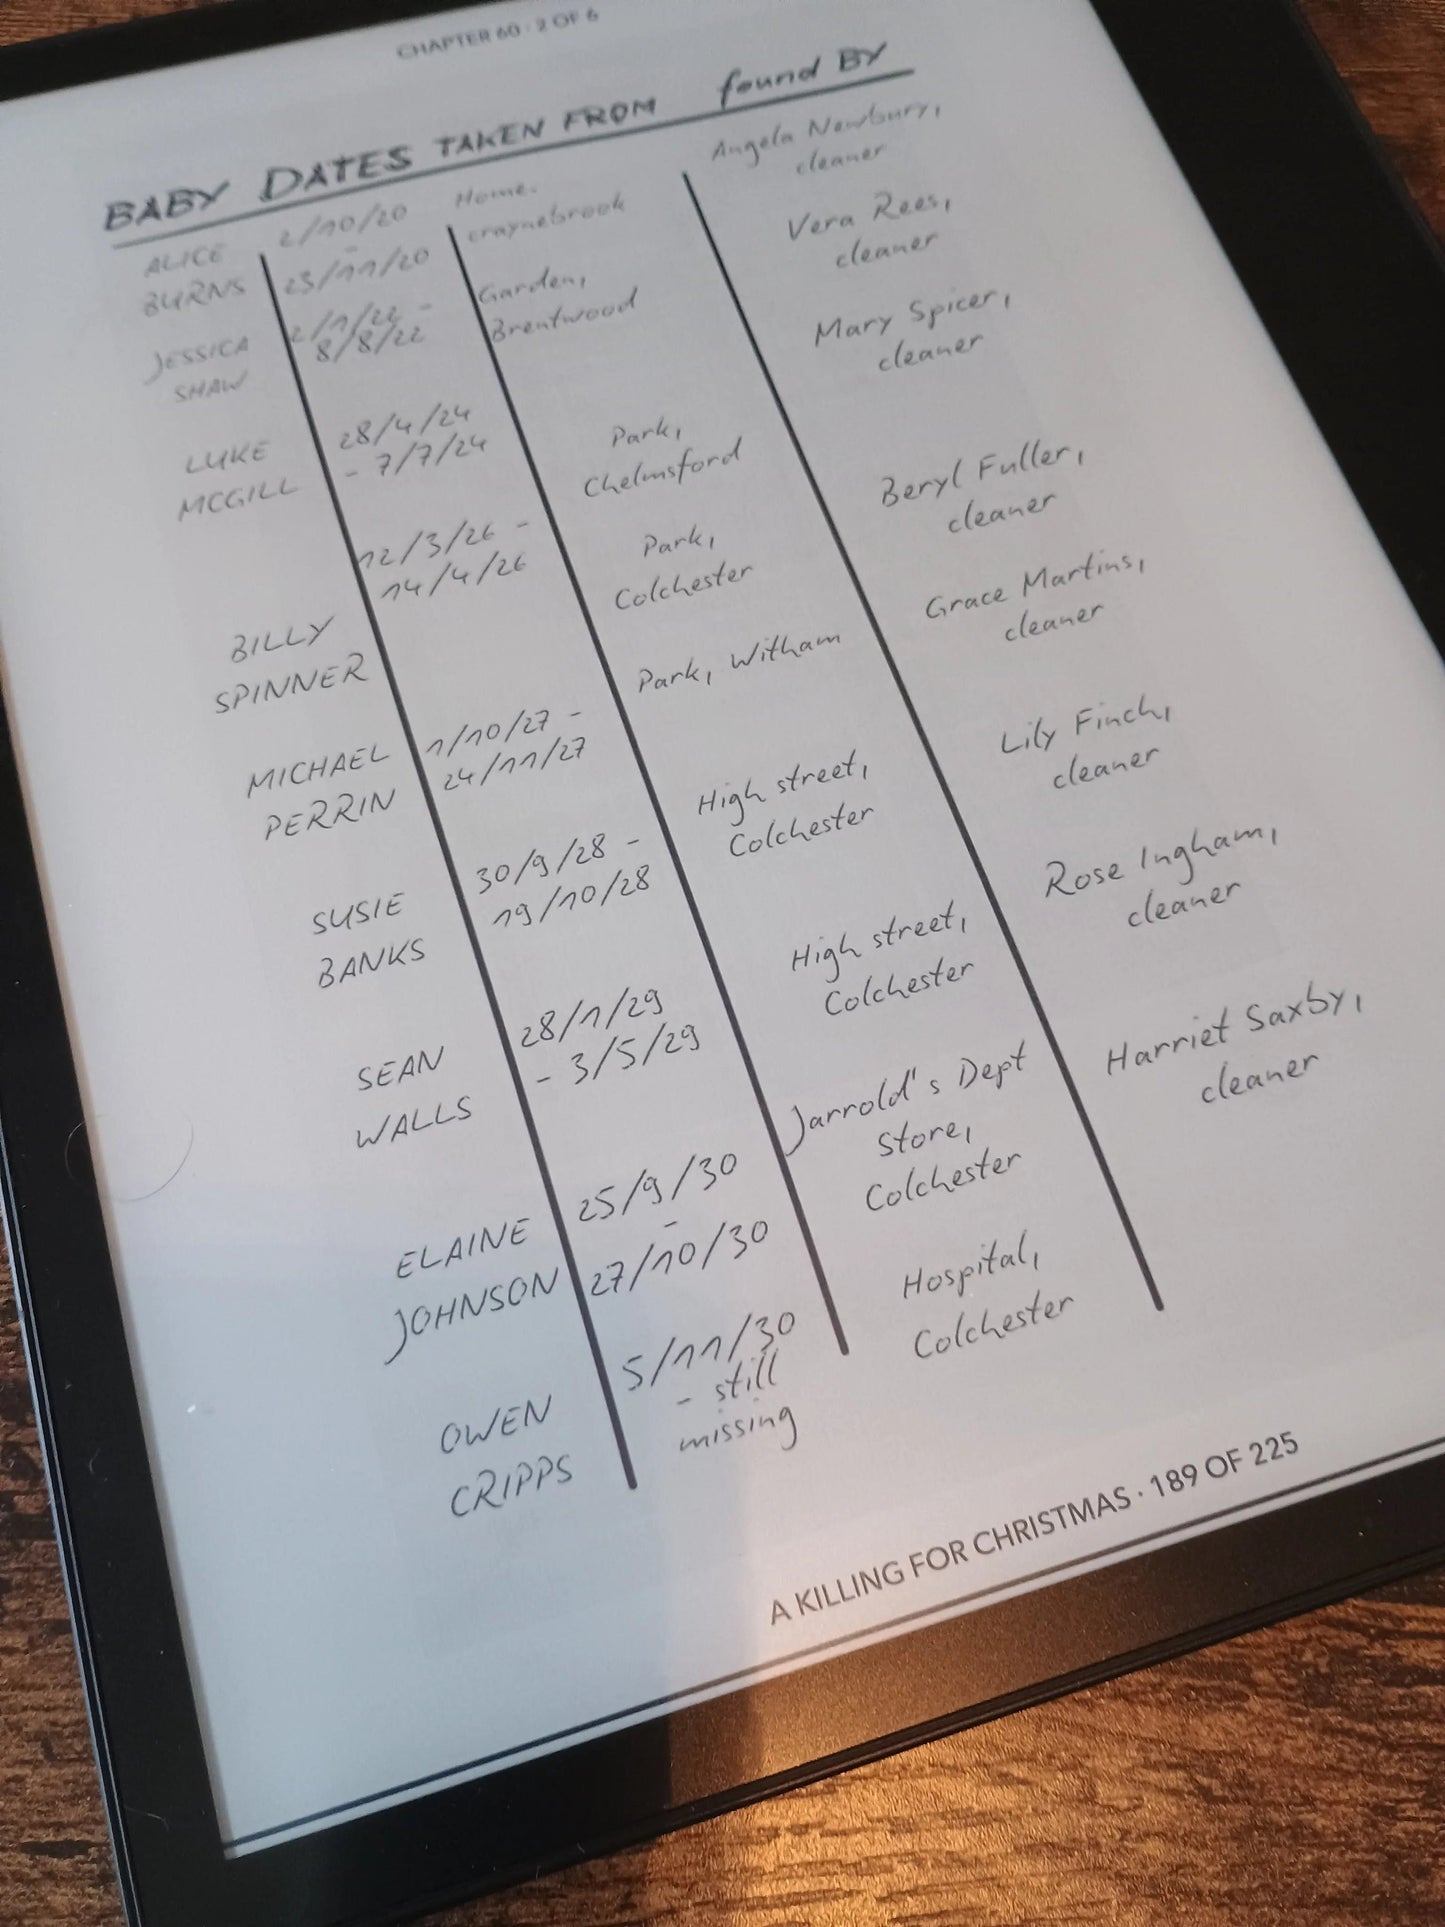 CHAPTER 60 · 2 OF 6
BABY DATES TAKEN FROM found BY
ALICE
BURNS
2/10/20
-
23/11/20
Home.
craynebrook
Angela Newbury,
cleaner
JESSICA
SHAW
2/1/22 -
8/8/22
Garden,
Brentwood
Vera Rees,
cleaner
LUKE
MCGILL
28/4/24
- 7/7/24
Park,
Chelmsford
Mary Spicer,
cleaner
BILLY
SPINNER
12/3/26 -
14/4/26
Park,
Colchester
Beryl Fuller,
cleaner
MICHAEL
PERRIN
1/10/27 -
24/11/27
Park, Witham
Grace Martins,
cleaner
SUSIE
BANKS
30/9/28 -
19/10/28
High street,
Colchester
Lily Finch,
cleaner
SEAN
WALLS
28/1/29
- 3/5/29
High street,
Colchester
Rose Ingham,
cleaner
ELAINE
JOHNSON
25/9/30
-
27/10/30
Jarrold's Dept
store,
Colchester
Harriet Saxby,
cleaner
OWEN
CRIPPS
5/11/30
- still
missing
Hospital,
Colchester
A KILLING FOR CHRISTMAS · 189 OF 225